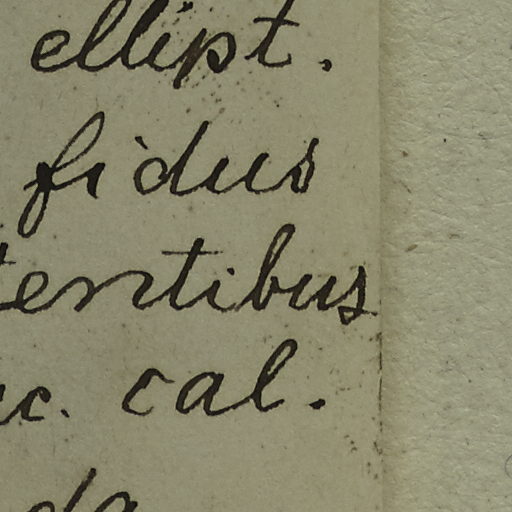 ellipt.
fidus
tentibus
c. cal.
da